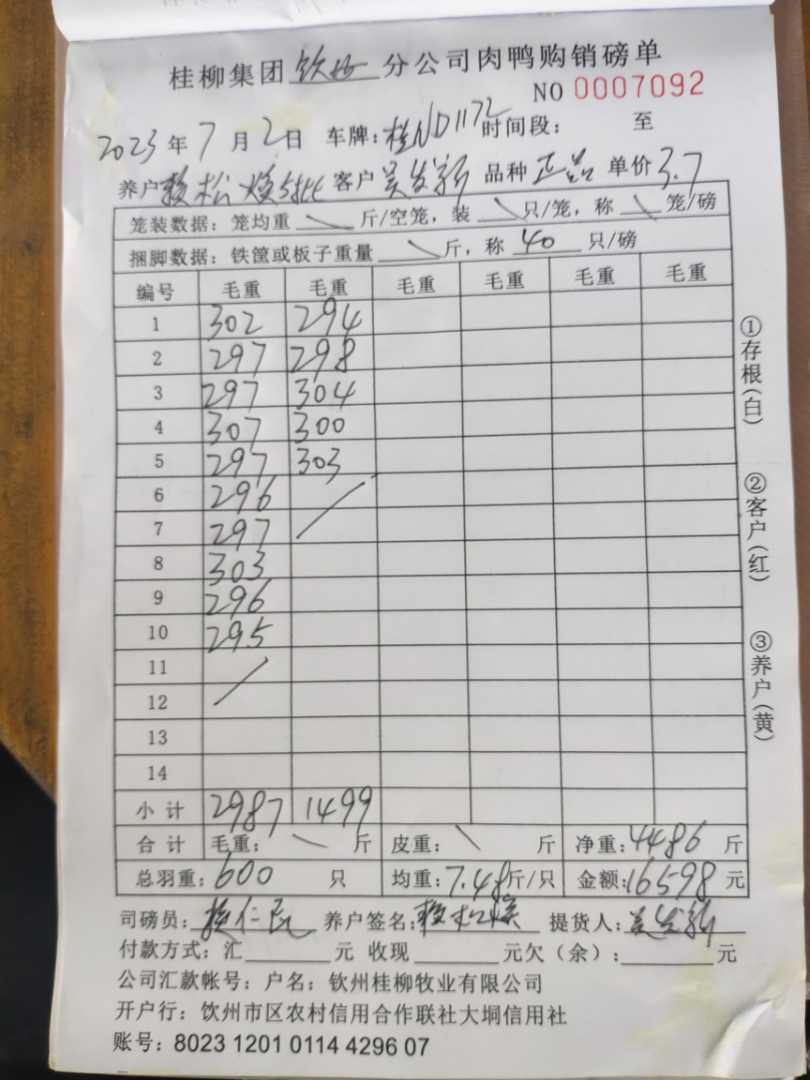 桂柳集团 钦州 分公司肉鸭购销磅单
NO 0007092
2023年7月2日 车牌:桂ND1172 时间段: 至
养户 赖松焕5批 客户 吴发新 品种 正品 单价3.7
笼装数据:笼均重 \ 斤/空笼,装 \ 只/笼,称 \ 笼/磅
捆脚数据:铁筐或板子重量 \ 斤,称 40 只/磅
编号 毛重 毛重 毛重 毛重 毛重 毛重
1 302 294
2 297 298
3 297 304
4 307 300
5 297 303
6 296
7 297
8 303
9 296
10 295
11
12
13
14
小计 2987 1499
合计 毛重: \ 斤 皮重: \ 斤 净重:4486 斤
总羽重:600 只 均重:7.48斤/只 金额:16598 元
司磅员: 仁 养户签名:赖松焕 提货人:吴发新
付款方式:汇 元 收现 元欠(余): 元
公司汇款帐号:户名:钦州桂柳牧业有限公司
开户行:饮州市区农村信用合作联社大垌信用社
账号:8023 1201 0114 4296 07
①存根(白)
②客户(红)
③养户(黄)